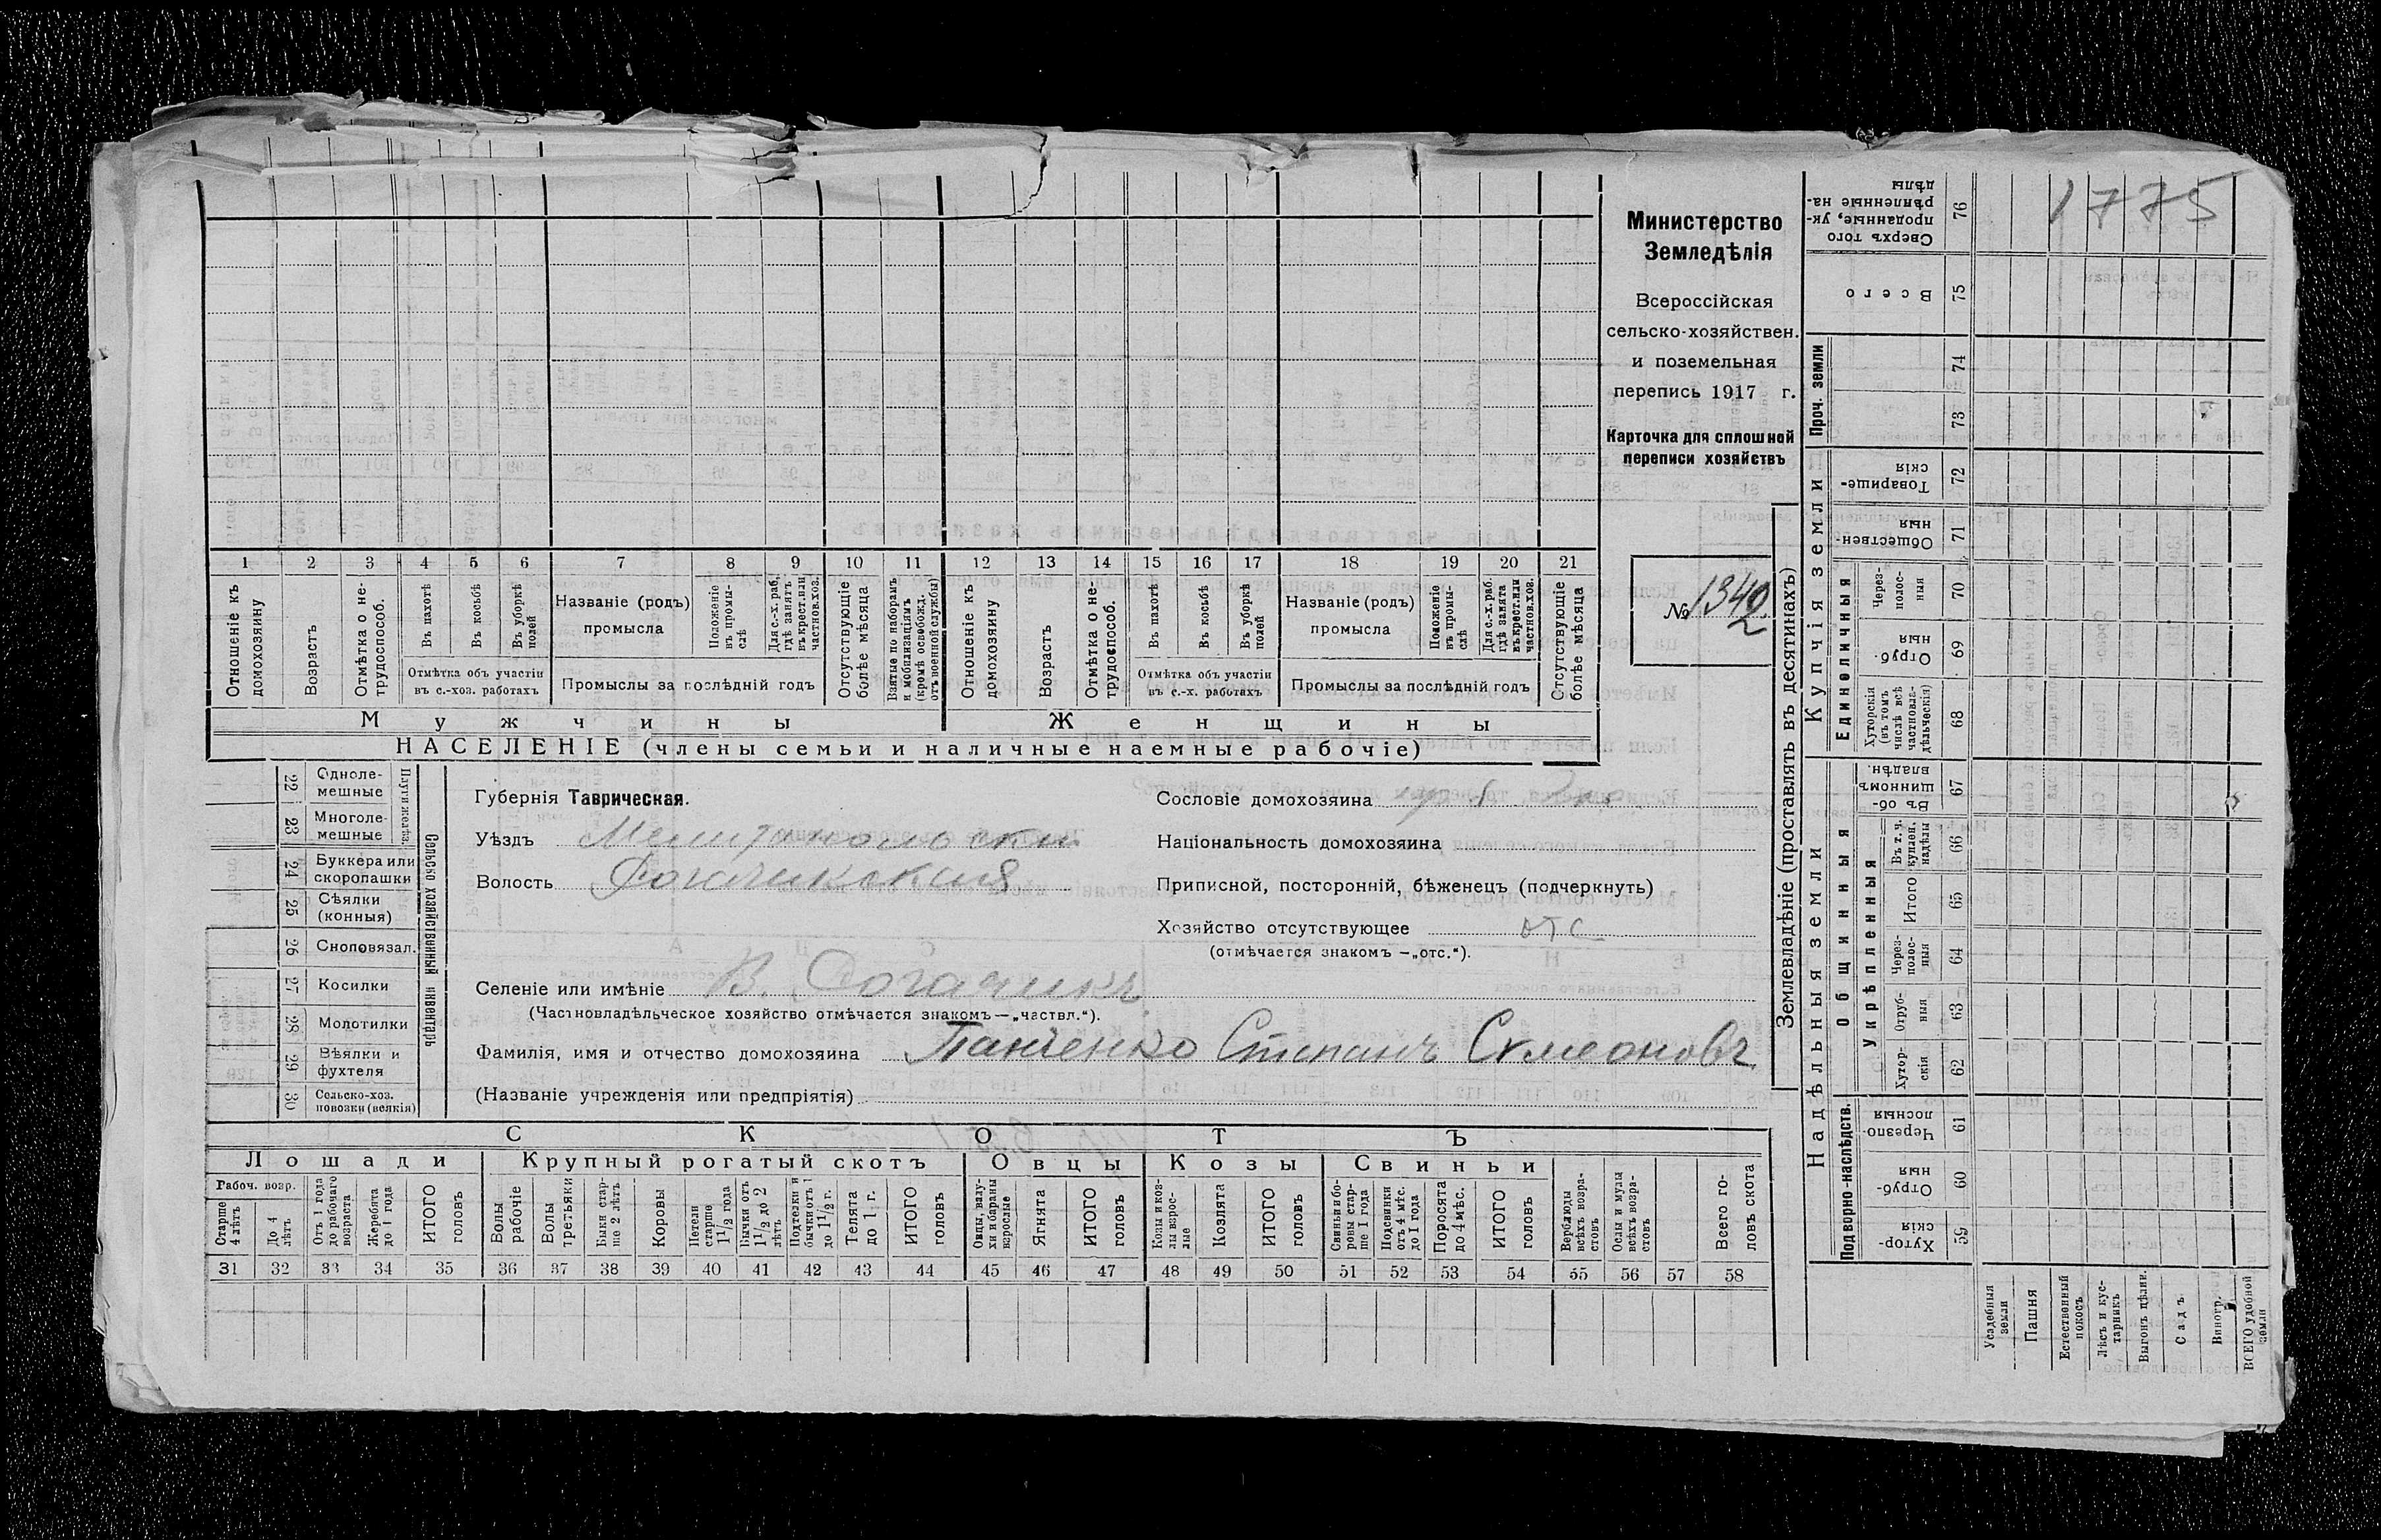 1775
Министерство
Земледѣлія
Всероссійская
сельско-хозяйствен.
и поземельная
перепись 1917 г.
Карточка для сплошной
переписи хозяйствъ
№ 1340
2
1 2 3 4 5 6 7 8 9 10 11 12 13 14 15 16 17 18 19 20 21
Отношеніе къ домохозяину
Возрастъ
Отмѣтка о не-трудоспособ.
Въ пахотѣ
Въ косьбѣ
Въ уборкѣ полей
Отмѣтка объ участіи
въ с.-хоз. работахъ
Названіе (родъ)
промысла
Положеніе въ промы-слѣ
Для с.-х. раб. гдѣ занятъ въ крест. или частнов. хоз.
Промыслы за послѣдній годъ
Отсутствующіе болѣе мѣсяца
Взятые по наборамъ и мобилизаціямъ (кромѣ освобожд. отъ военной службы)
Отношеніе къ домохозяину
Возрастъ
Отмѣтка о не-трудоспособ.
Въ пахотѣ
Въ косьбѣ
Въ уборкѣ полей
Отмѣтка объ участіи
въ с.-х. работахъ
Названіе (родъ)
промысла
Положеніе въ промы-слѣ
Для с.-х. раб. гдѣ занята въ крест. или частнов. хоз.
Промыслы за послѣдній годъ
Отсутствующіе болѣе мѣсяца
Мужчины Женщины
НАСЕЛЕНІЕ (члены семьи и наличные наемные рабочіе)
Сельско хозяйственный инвентарь
Плуги желѣз.
22 Однолемешные
23 Многолемешные
24 Буккера или скоропашки
25 Сѣялки (конныя)
26 Сноповязал.
27 Косилки
28 Молотилки
29 Вѣялки и фухтеля
30 Сельско-хоз. повозки (всякія)
Губернія Таврическая.
Уѣздъ Мелитопольски
Волость
Сословіе домохозяина
Національность домохозяина
Приписной, посторонній, бѣженецъ (подчеркнуть)
Хозяйство отсутствующее отс
(отмѣчается знакомъ —„отс.“).
Селеніе или имѣніе В. Рогачикъ
(Частновладѣльческое хозяйство отмѣчается знакомъ—„частвл.“).
Фамилія, имя и отчество домохозяина Панченко Степанъ Симеоновъ
(Названіе учрежденія или предпріятія)
СКОТЪ
Лошади Крупный рогатый скотъ Овцы Козы Свиньи
Рабоч. возр.
Старше 4 лѣтъ
До 4 лѣтъ
Отъ 1 года до рабочаго возраста
Жеребята до 1 года
ИТОГО головъ
Волы рабочіе
Волы третьяки
Быки старше 2 лѣтъ
Коровы
Нетели старше 1 1/2 года
Бычки отъ 1 1/2 до 2 лѣтъ
Подтелки и бычки отъ 1 до 1 1/2 г.
Телята до 1 г.
ИТОГО головъ
Овцы, валухи и бараны взрослые
Ягнята
ИТОГО головъ
Козы и козлы взрослые
Козлята
ИТОГО головъ
Свиньи и боровы старше 1 года
Подсвинки отъ 4 мѣс. до 1 года
Поросята до 4 мѣс.
ИТОГО головъ
Верблюды всѣхъ возрастовъ
Ослы и мулы всѣхъ возрастовъ
Всего головъ скота
31 32 33 34 35 36 37 38 39 40 41 42 43 44 45 46 47 48 49 50 51 52 53 54 55 56 57 58
Землевладѣніе (проставлять въ десятинахъ)
Купчія земли
Надѣльныя земли
Сверхъ того проданные, укрѣпленные надѣлы 76
Всего 75
Проч. земли 74 73
Товарищескія 72
Общественныя 71
Единоличныя
Черезполосныя 70
Отрубныя 69
Хуторскія (въ томъ числѣ всѣ частновладѣльческія) 68
Общинныя
Въ общинномъ владѣн. 67
Укрѣпленныя
Въ т. ч. куплен. надѣлы 66
Итого 65
Черезполосныя 64
Отрубныя 63
Хуторскія 62
Подворно-наслѣдств.
Черезполосныя 61
Отрубныя 60
Хуторскія 59
Усадебныя земли
Пашня
Естественный покосъ
Лѣсъ и кустарникъ
Выгонъ цѣлин.
Садъ
Виногр.
ВСЕГО удобной земли